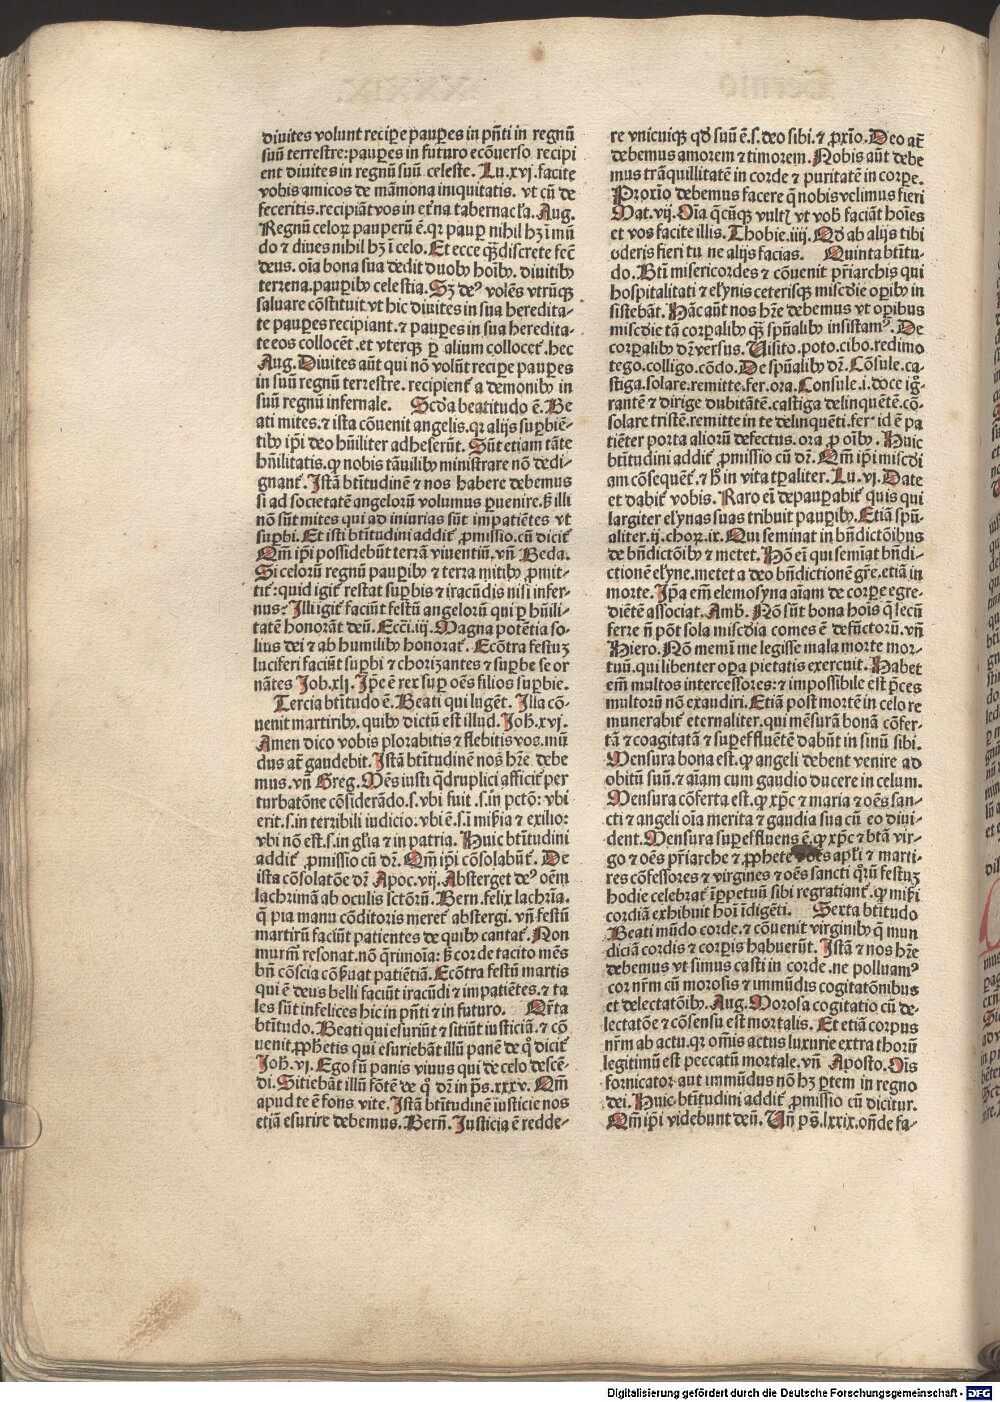 diuites volunt recipe paupes in pñti in regnũ
suũ terrestre: paupes in futuro ecõuerso recipi
ent diuites in regnũ suũ celeste. Lu. xvj. facite
vobis amicos de mãmona iniquitatis. vt cũ de
feceritis. recipiãt vos in eťna tabernacľa. Aug.
Regnũ celoꝝ pauperũ ē. qꝛ paup nihil hꝫ ī mũ
do ⁊ diues nihil hꝫ ī celo. Et ecce qꝫ discrete fec̄
deus. oīa bona sua dedit duobꝰ hoībꝰ. diuitibꝰ
terrena. paupibꝰ celestia. Sꝫ deꝰ volēs vtrũqꝫ
saluare cõstituit vt hic diuites in sua heredita-
te paupes recipiant. ⁊ paupes in sua heredita-
te eos collocēt. et vterqꝫ ꝑ alium collocet̄. hec
Aug. Diuites aũt qui nõ volũt recipe paupes
in suũ regnũ terrestre. recipient̄ a demonibꝰ in
suũ regnũ infernale. Scďa beatitudo ē. Be
ati mites. ⁊ ista cõuenit angelis. qꝛ alijs supbiē-
tibꝰ ipi deo hũiliter adheserũt. Sũt etiam tãte
hũilitatis. ꝙ nobis tãuilibꝰ ministrare nõ dedi-
gnant̄. Istã btĩtudinē ⁊ nos habere debemus
si ad societatē angelorũ volumus puenire. sꝫ illi
nõ sũt mites qui ad iniurias sũt impatiētes vt
supbi. Et isti btĩtudini addit̄ ꝓmissio. cũ dicit̄
Qm̃ ipi possidebũt terrã viuentiũ. vñ Beda.
Si celorũ regnũ paupibꝰ ⁊ terra mitibꝰ ꝓmit-
tit̄: quid igit̄ restat supbis ⁊ iracũdis nisi infer-
nus? Illi igit̄ faciũt festũ angelorũ qui ꝑ hũili-
tatē honorãt deũ. Ecci. iij. Magna potētia so-
lius dei ⁊ ab humilibꝰ honorat̄. Ecõtra festuꝫ
luciferi faciũt supbi ⁊ chorizantes ⁊ supbe se or
nãtes Iob. xlj. Ipe ē rex sup oēs filios supbie.
Tercia btĩtudo ē. Beati qui lugēt. Illa cõ-
uenit martiribꝰ. quibꝰ dictũ est illud. Ioh. xvj.
Amen dico vobis plorabitis ⁊ flebitis vos. mũ
dus at̄ gaudebit. Istã btĩtudinē nos hr̃e debe
mus. vñ Greg. Mēs iusti qdruplici afficit̄ per
turbatõne cõsiderãdo. s. vbi fuit. s. in pctõ: vbi
erit. s. in terribili iudicio. vbi ē. s. ī misia ⁊ exilio:
vbi nõ est. s. in glia ⁊ in patria. Huic btĩtudini
addit̄ ꝓmissio cũ dr̃. Qm̃ ipi cõsolabũt̄. De
ista cõsolatõe dr̃ Apoc. vij. Absterget deꝰ oēm
lachrimã ab oculis sctõrũ. Bern. felix lachria.
q̃ pia manu cõditoris meret̄ abstergi. vñ festũ
martirũ faciũt patientes de quibꝰ cantat̄. Non
murm̃ resonat. nõ q̃rimoīa: sꝫ corde tacito mēs
bñ cõscia cõseruat patiētiã. Ecõtra festũ martis
qui ē deus belli faciũt iracũdi ⁊ impatiētes. ⁊ ta
les sũt infelices hic in pñti ⁊ in futuro. Qr̃ta
btĩtudo. Beati qui esuriũt ⁊ sitiũt iusticiã. ⁊ cõ
uenit ꝓphetis qui esuriebãt illũ panē de qͦ dicit̄
Ioh. vj. Ego sũ panis viuus qui de celo descē-
di. Sitiebãt illũ fõtē de qͦ dr̃ in ps. xxxv. Qm̃
apud te ē fons vite. Istã btĩtudinē iusticie nos
etiã esurire debemus. Berñ. Iusticia ē redde-
re vnicuiqꝫ qď suũ ē. s. deo sibi. ⁊ ꝓxio. Deo at̄
debemus amorem ⁊ timorem. Nobis aũt debe
mus trãquillitatē in corde ⁊ puritatē in corpe.
Proxio debemus facere q̃ nobis velimus fieri
Mat. vij. Oīa q̃cũqꝫ vultis vt vobͦ faciãt hoīes
et vos facite illis. Thobie. iiij. Qď ab alijs tibi
oderis fieri tu ne alijs facias. Quinta btĩtu-
do. Bti misericordes ⁊ cõuenit pr̃iarchis qui
hospitalitati ⁊ elynis ceterisqꝫ miscdie opibꝰ in
sistebãt. Hãc aũt nos hr̃e debemus vt opibus
miscdie tã corpalibꝰ qꝫ spũalibꝰ insistamꝰ. De
corpalibꝰ dr̃ versus. Uisito. poto. cibo. redimo
tego. colligo. cõdo. De spũalibꝰ dr̃. Cõsule. ca-
stiga. solare. remitte. fer. ora. Consule. i. doce igr̃-
rantē ⁊ dirige dubitãtē. castiga delinquētē. cõ-
solare tristē. remitte in te delinquēti. fer. id ē pa
tiēter porta aliorũ defectus. ora ꝓ oībꝰ. Huic
btĩtudini addit̄ ꝓmissio cũ dr̃. Qm̃ ipi miscdi
am cõsequēt̄. ⁊ hͦ in vita tpaliter. Lu. vj. Date
et dabit̄ vobis. Raro ei depaupabit̄ quis qui
largiter elynas suas tribuit paupibꝰ. Etiã spũ-
aliter. ij. choꝝ. ix. Qui seminat in bñdictõibus
de bñdictõibꝰ ⁊ metet. Hõ ei qui semiat bñdi-
ctionē elyne. metet a deo bñdictionē gr̃e. etiã in
morte. Ipa em̃ elemosyna aiam de corpe egre-
diētē associat. Amb. Nõ sũt bona hoīs q̃ secũ
ferre ñ põt sola miscdia comes ē defũctorũ. vñ
Hiero. Nõ memi me legisse mala morte mor-
tuũ. qui libenter opa pietatis exercuit. Habet
em̃ multos intercessores: ⁊ impossibile est p̃ces
multorũ nõ exaudiri. Etiã post mortē in celo re
munerabit̄ eternaliter. qui mēsurã bonã cõfer-
tã ⁊ coagitatã ⁊ supeffluētē dabũt in sinũ sibi.
Mensura bona est. ꝙ angeli debent venire ad
obitũ suũ. ⁊ aīam cum gaudio ducere in celum.
Mensura cõferta est. ꝙ xp̃c ⁊ maria ⁊ oēs san-
cti ⁊ angeli oīa merita ⁊ gaudia sua cũ eo diui-
dent. Mensura supeffluens ē. ꝙ xp̃c ⁊ btã vir-
go ⁊ oēs pr̃iarche ⁊ ꝓphete oēs apľi ⁊ marti-
res cõfessores ⁊ virgines ⁊ oēs sancti qꝛũ festuꝫ
hodie celebrat̄ ippetuũ sibi regratiant̄. ꝙ misi
cordiã exhibuit hoī idigēti. Sexta btĩtudo
Beati mũdo corde. ⁊ cõuenit virginibꝰ q̃ mun
diciã cordis ⁊ corpis habuerũt. Istã ⁊ nos hr̃e
debemus vt simus casti in corde. ne polluamꝰ
cor nr̃m cũ morosis ⁊ immũdis cogitatõnibus
et delectatõibꝰ. Aug. Morosa cogitatio cũ de-
lectatõe ⁊ cõsensu est mortalis. Et etiã corpus
nr̃m ab actu. qꝛ omīs actus luxurie extra thorũ
legitimũ est peccatũ mortale. vñ Aposto. Oīs
fornicator aut immũdus nõ hꝫ ptem in regno
dei. Huic btĩtudini addit̄ ꝓmissio cũ dicitur.
Qm̃ ipi videbunt deũ. Uñ ps. lxxix. onde fa-
Digitalisierung gefördert durch die Deutsche Forschungsgemeinschaft - DFG